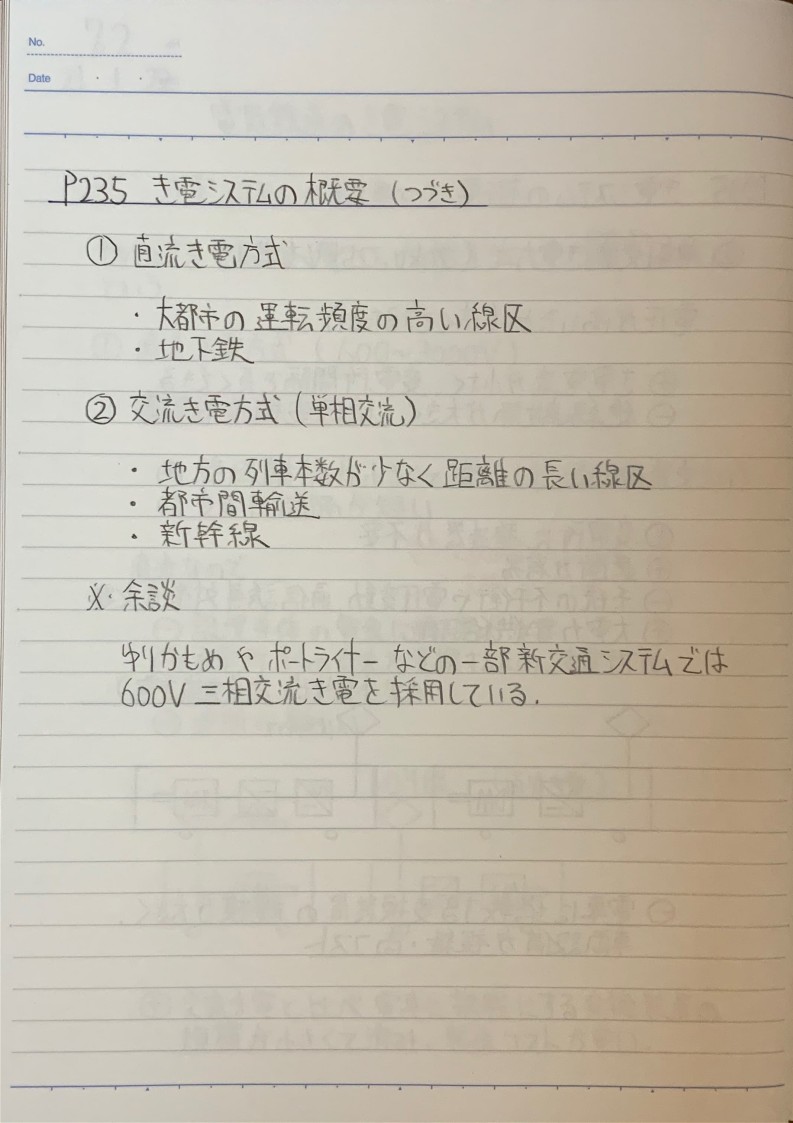 No.
Date
P235 き電システムの概要（つづき）
① 直流き電方式
・大都市の運転頻度の高い線区
・地下鉄
② 交流き電方式（単相交流）
・地方の列車本数が少なく距離の長い線区
・都市間輸送
・新幹線
※・余談
ゆりかもめやポートライナーなどの一部新交通システムでは
600V 三相交流き電を採用している.